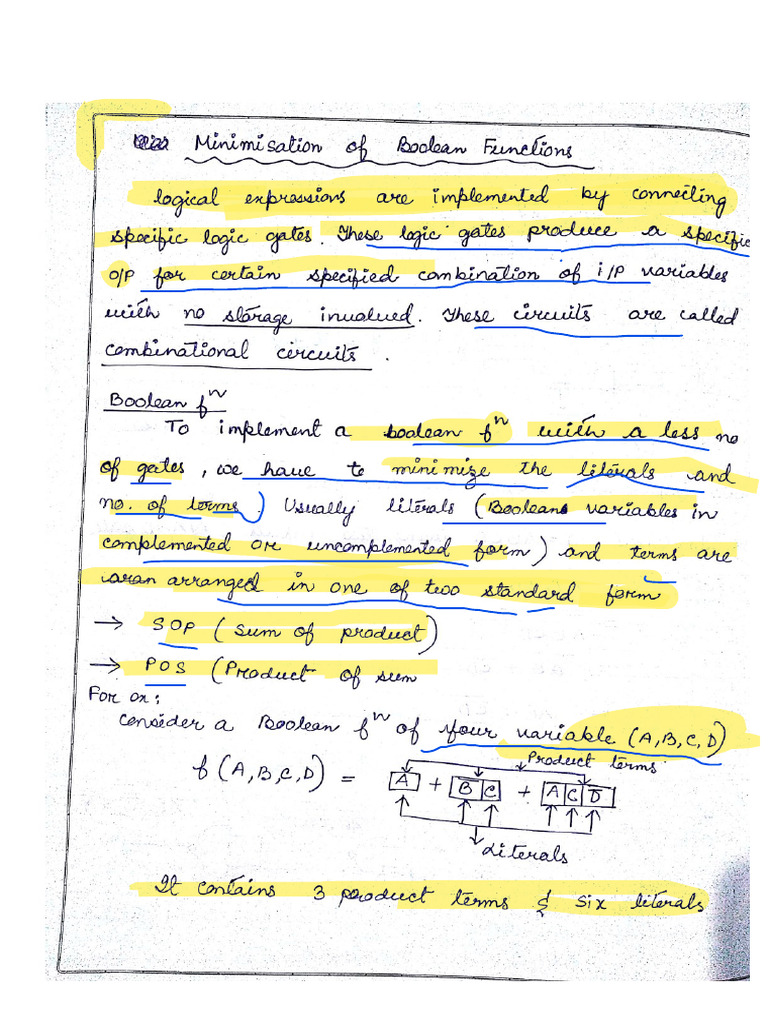 Minimisation of Boolean Functions
logical expressions are implemented by connecting
specific logic gates. These logic gates produce a specific
O/P for certain specified combination of i/P variables
with no storage involved. These circuits are called
combinational circuits.
Boolean fⁿ
To implement a boolean fⁿ with a less no
of gates, we have to minimize the literals and
no. of terms. Usually literals (Boolean variables in
complemented or uncomplemented form) and terms are
arranged in one of two standard form
→ SOP (Sum of product)
→ POS (Product of sum
For ex:
Consider a Boolean fⁿ of four variable (A,B,C,D)
Product terms
f(A,B,C,D) = A + B̅C + ACD̅
Literals
It contains 3 product terms & six literals